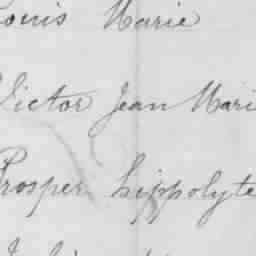 Louis Marie
Victor Jean Mari
Prosper hippolyte